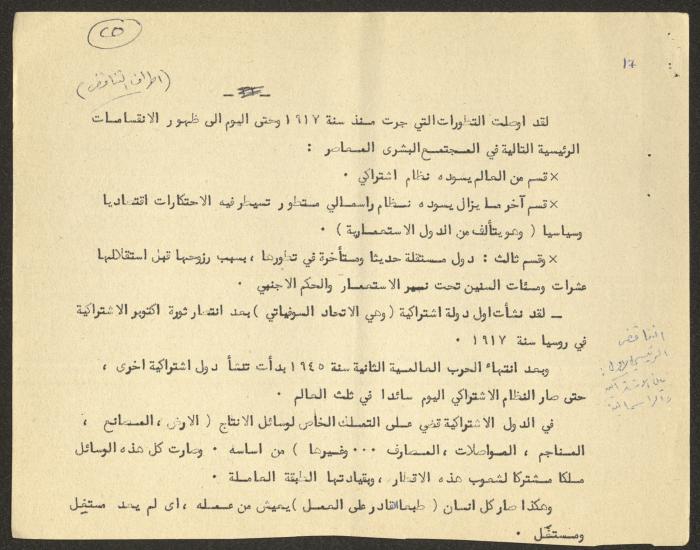 ٢٥
١٧
(اطراف التناقض)
لقد اوصلت التطورات التي جرت منذ سنة ١٩١٧ وحتى اليوم الى ظهور الانقسامات
الرئيسية التالية في المجتمع البشرى المعاصر :
× قسم من العالم يسوده نظام اشتراكي .
× قسم آخر ما يزال يسوده نظام راسمالي متطور تسيطر فيه الاحتكارات اقتصاديا
وسياسيا ( وهو يتألف من الدول الاستعمارية ) .
× وقسم ثالث : دول مستقلة حديثا ومتأخرة في تطورها ، بسبب رزوحها قبل استقلالها
عشرات ومئات السنين تحت نير الاستعمار والحكم الاجنبي .
ـ لقد نشأت اول دولة اشتراكية ( وهي الاتحاد السوفياتي ) بعد انتصار ثورة اكتوبر الاشتراكية
في روسيا سنة ١٩١٧ .
وبعد انتهاء الحرب العالمية الثانية سنة ١٩٤٥ بدأت تنشأ دول اشتراكية اخرى ،
حتى صار النظام الاشتراكي اليوم سائدا في ثلث العالم .
في الدول الاشتراكية قضي على التملك الخاص لوسائل الانتاج ( الارض ، المصانع ،
المناجم ، المواصلات ، المصارف ... وغيرها ) من اساسه . وصارت كل هذه الوسائل
ملكا مشتركا لشعوب هذه الاقطار ، وبقيادتها الطبقة العاملة .
وهكذا صار كل انسان ( طبعا القادر على العمل ) يعيش من عمله ، اى لم يعد مستغِل
ومستغَل .
التناقض
الرئيسي الاول :
بين الاشتراكية
والراسمالية